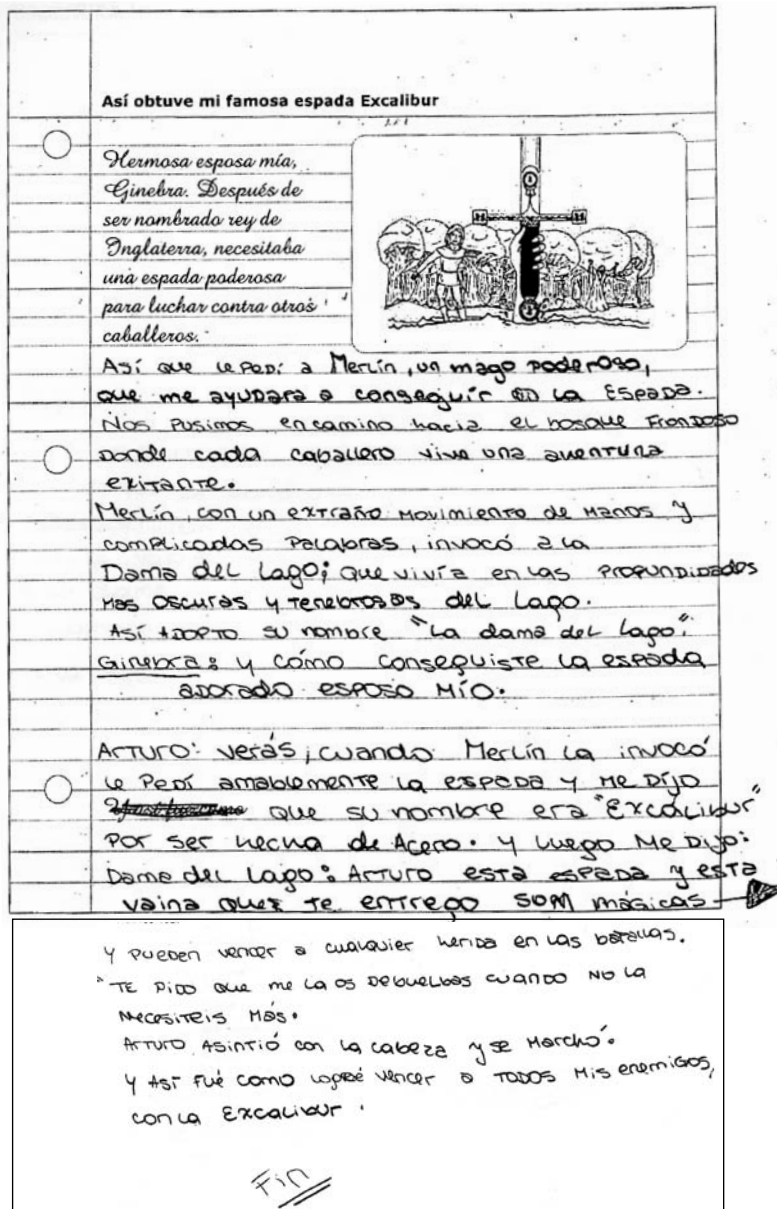 Así obtuve mi famosa espada Excalibur
Hermosa esposa mía,
Ginebra. Después de
ser nombrado rey de
Inglaterra, necesitaba
una espada poderosa
para luchar contra otros
caballeros.
Así que le pedí a Merlín, un mago poderoso,
que me ayudara a conseguir la espada.
Nos pusimos en camino hacia el bosque frondoso
donde cada caballero vive una aventura
exitante.
Merlín, con un extraño movimiento de manos y
complicadas palabras, invocó a la
Dama del Lago; que vivía en las profundidades
mas oscuras y tenebrosas del lago.
Así adopto su nombre "La dama del lago".
Ginebra: y cómo conseguiste la espada
adorado esposo mío.
Arturo: verás, cuando Merlín la invocó
le pedí amablemente la espada y me dijo
que su nombre era "Excálibur"
por ser hecha de Acero. y luego me dijo:
Dama del lago: Arturo esta espada y esta
vaina que te entrego son mágicas
y pueden vencer a cualquier herida en las batallas.
"Te pido que me la os debuelbas cuando no la
necesiteis más.
Arturo asintió con la cabeza y se marchó.
Y así fué como logré vencer a todos mis enemigos,
con la Excalibur.
Fin